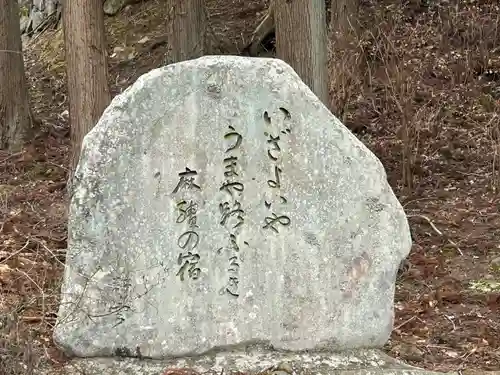 いざよいや
うまや路ふるき
麻績の宿